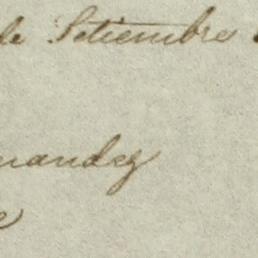 de Setiembre
nandez
e